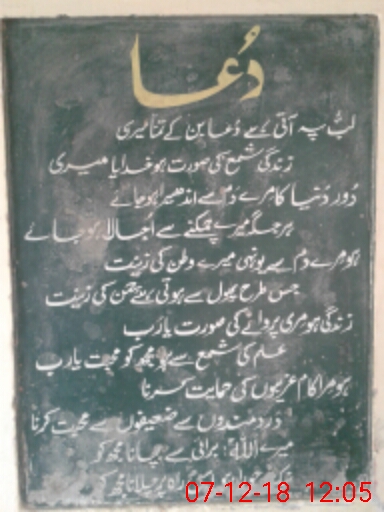 دُعا
لب پہ آتی ہے دُعا بن کے تمنا میری
زندگی شمع کی صورت ہو خدایا میری
دُور دُنیا کا مرے دَم سے اندھیرا ہو جائے
ہر جگہ میرے چمکنے سے اُجالا ہو جائے
ہو مرے دم سے یونہی میرے وطن کی زینت
جس طرح پھول سے ہوتی ہے چمن کی زینت
زندگی ہو مری پروانے کی صورت یا رَب
علم کی شمع سے ہو مجھ کو محبت یا رب
ہو مرا کام غریبوں کی حمایت کرنا
دردمندوں سے ضعیفوں سے محبت کرنا
میرے اللہ! برائی سے بچانا مجھ کو
نیک جو راہ ہو اس رہ پہ چلانا مجھ کو
07-12-18 12:05